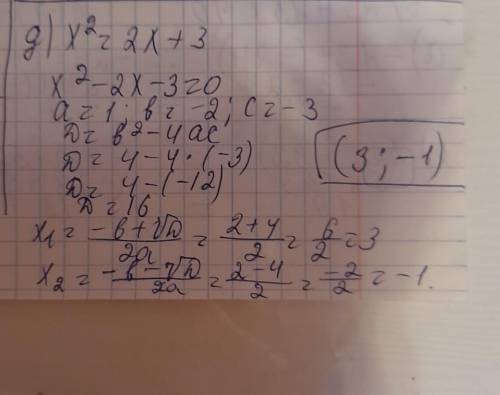 д) x² = 2x + 3
x² - 2x - 3 = 0
a = 1; в = -2; c = -3
D = в² - 4ac
D = 4 - 4 · (-3)
(3; -1)
D = 4 - (-12)
D = 16
x₁ = (-в + √D)/2a = (2+4)/2 = 6/2 = 3
x₂ = (-в - √D)/2a = (2-4)/2 = -2/2 = -1.